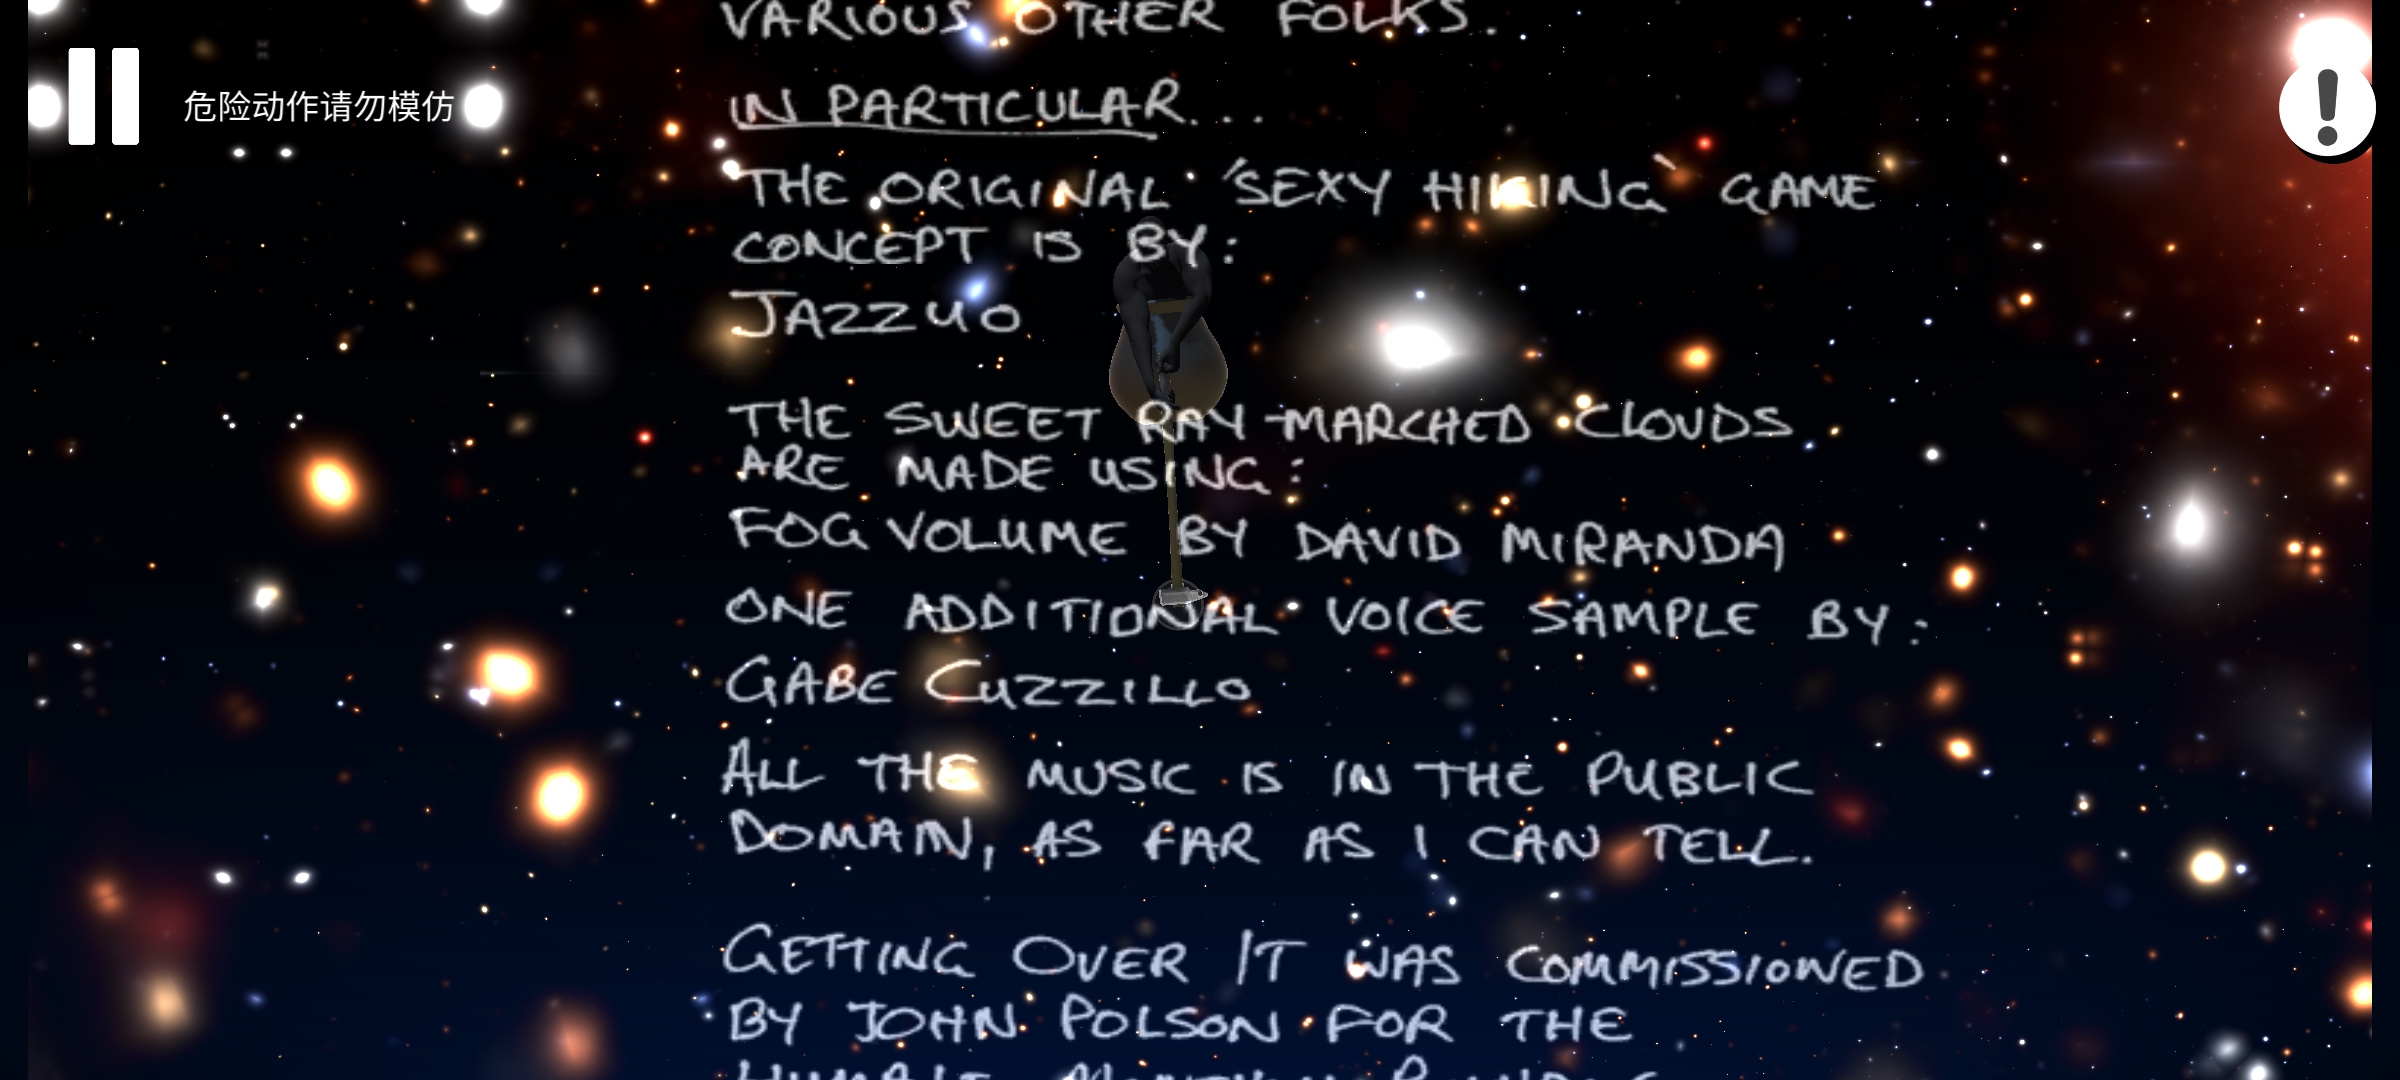 VARIOUS OTHER FOLKS.
危险动作请勿模仿
IN PARTICULAR...
THE ORIGINAL 'SEXY HIKING' GAME
CONCEPT IS BY:
JAZZUO
THE SWEET RAY-MARCHED CLOUDS
ARE MADE USING:
FOG VOLUME BY DAVID MIRANDA
ONE ADDITIONAL VOICE SAMPLE BY:
GABE CUZZILLO
ALL THE MUSIC IS IN THE PUBLIC
DOMAIN, AS FAR AS I CAN TELL.
GETTING OVER IT WAS COMMISSIONED
BY JOHN POLSON FOR THE
HUMBLE MONTHLY BUNDLE